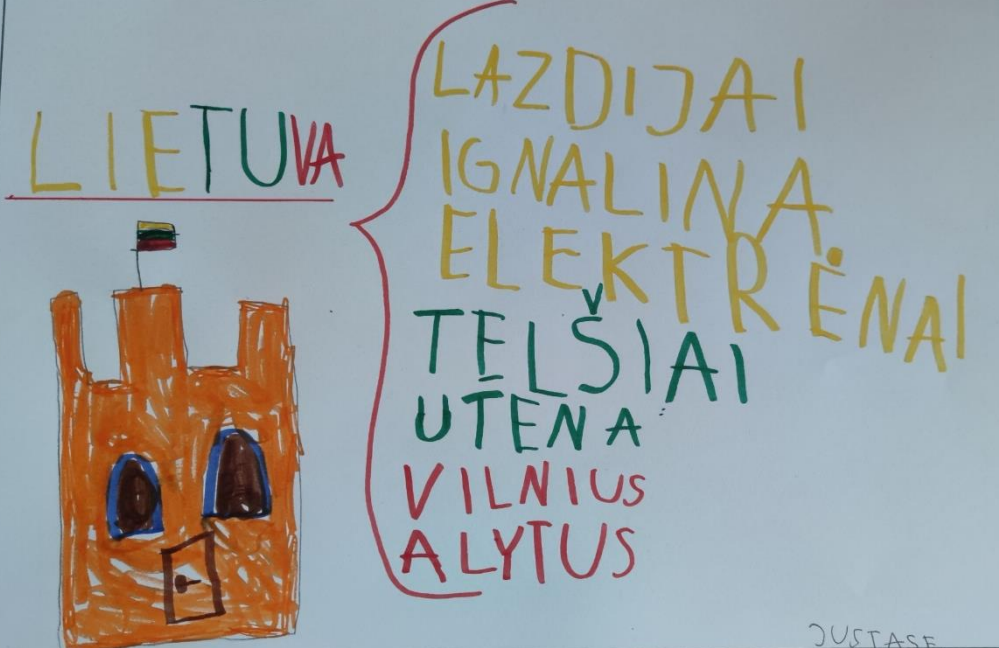 LIETUVA
LAZDIJAI
IGNALINA
ELEKTRĖNAI
TELŠIAI
UTENA
VILNIUS
ALYTUS